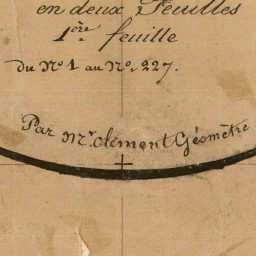 en deux Feuilles
1ère feuille
du No 1 au No. 227.
Par Mr. Clément Géomètre